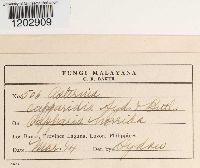 1202909
FUNGI MALAYANA
C. F. BAKER
No. 506 Asterina
Capparidis Syd. & Butl.
On Capparis horrida
Los Baños, Province Laguna, Luzon, Philippines
Date Mar. 14 Det. by Sydow